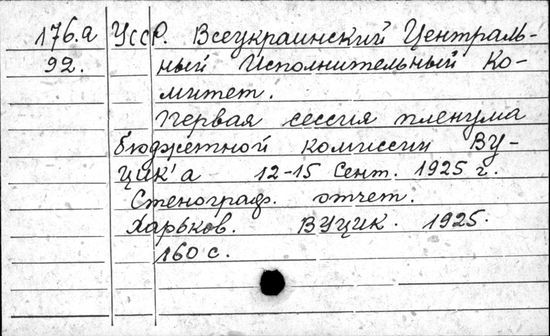 176.а УссР. Всеукраинский Централь-
92. ный Исполнительный Ко-
митет.
Первая сессия пленума
бюджетной комиссии ВУ-
ЦИК'а 12-15 Сент. 1925 г.
Стенограф. отчет.
Харьков. ВУЦИК. 1925.
160 с.